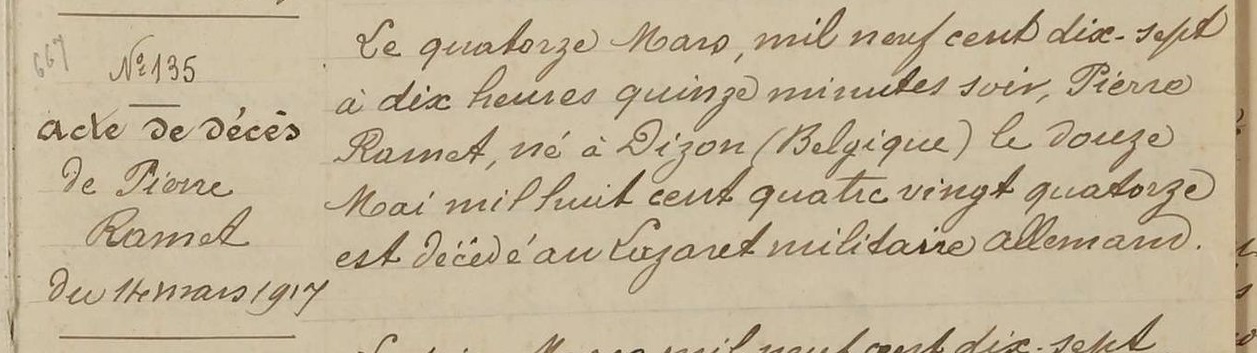 667
Nº 135
acte de décès
de Pierre
Ramet
du 14 mars 1917
Le quatorze Mars, mil neuf cent dix-sept
à dix heures quinze minutes soir, Pierre
Ramet, né à Dizon (Belgique) le douze
Mai mil huit cent quatre vingt quatorze
est décédé au Lazaret militaire allemand.
mil neuf cent dix-sept